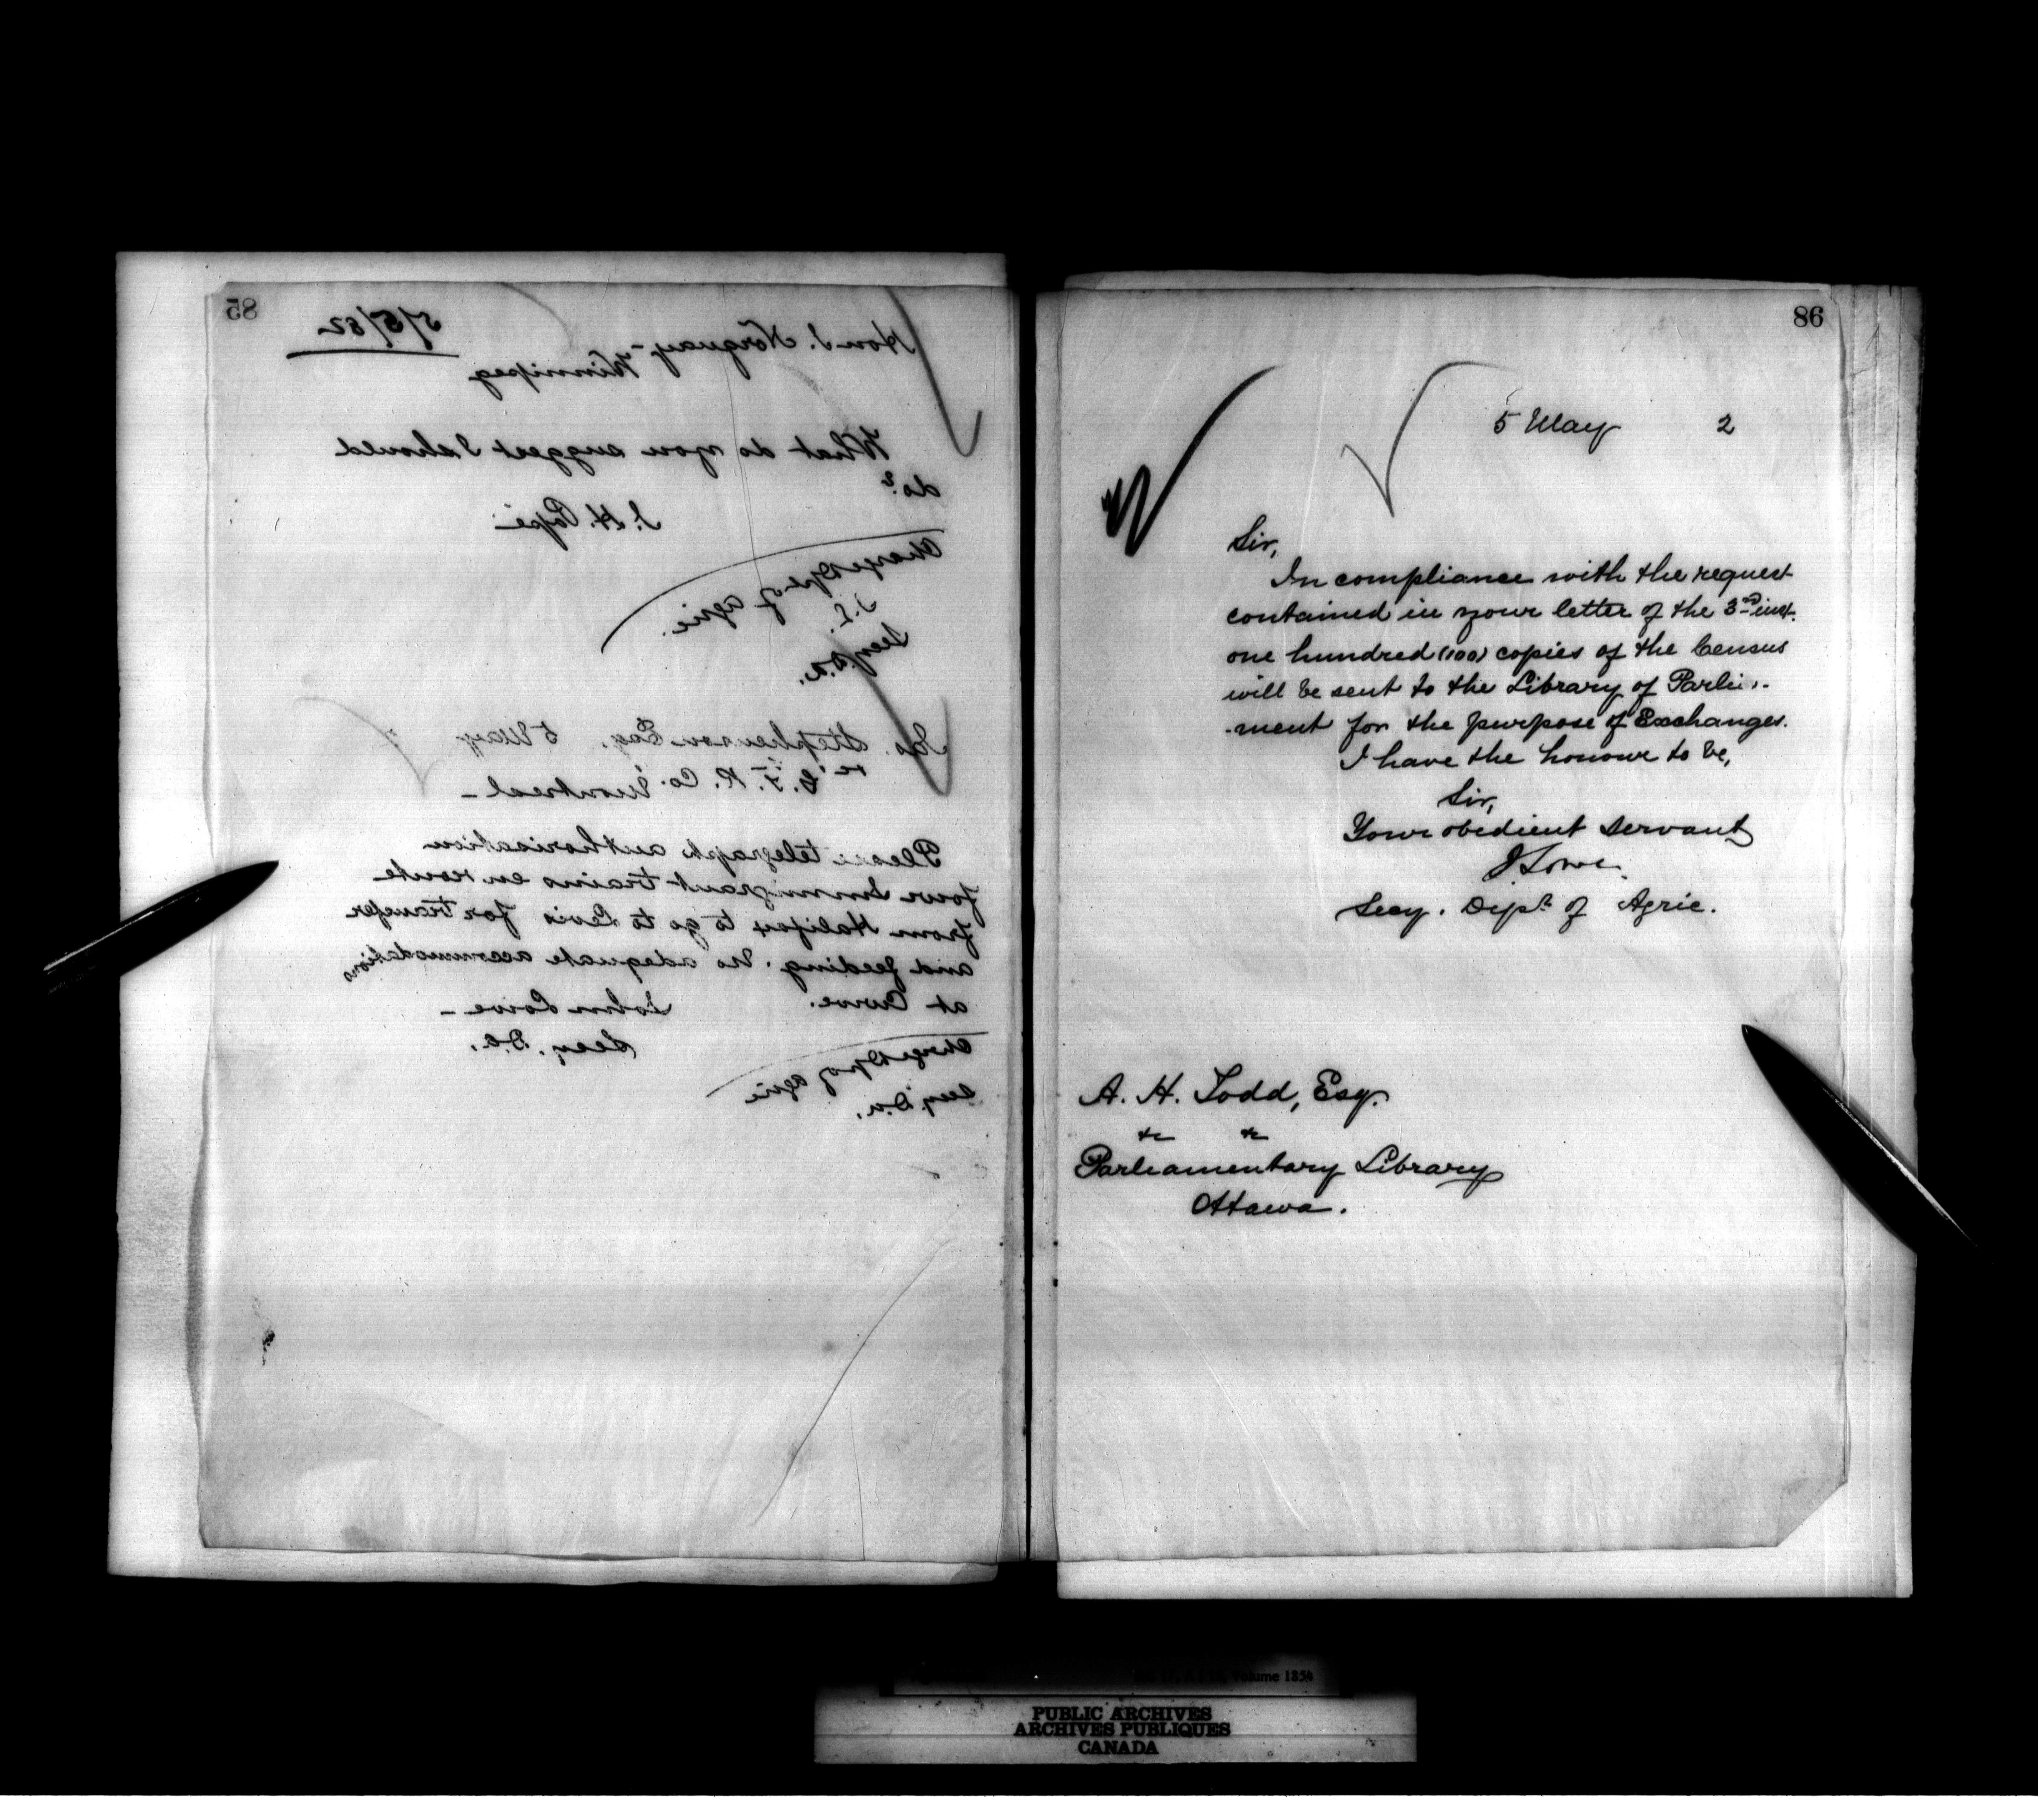 85
5/5/82
Hon J. Norquay -
Winnipeg
What do you suggest I should
do?
J. H. Pope
Charge Dpt of Agric.
J. L.
Secy. D. A.
Jas. Stephenson Esq. 5 May
G. T. R. Co. Montreal -
Please telegraph authorisation
four Immigrant trains en route
from Halifax to go to Levis for transfer
and feeding. No adequate accommodation
at Curve.
John Lowe -
Secy. D. A.
Charge Dp of Agric
Secy. D. A.
86
5 May 2
Sir,
In compliance with the request
contained in your letter of the 3rd inst.
one hundred (100) copies of the Census
will be sent to the Library of Parlia-
-ment for the purpose of Exchanges.
I have the honour to be,
Sir,
Your obedient servant
J Lowe.
Secy. Dept. of Agric.
A. H. Todd, Esq.
&c &c
Parliamentary Library
Ottawa.
Volume 1854
PUBLIC ARCHIVES
ARCHIVES PUBLIQUES
CANADA